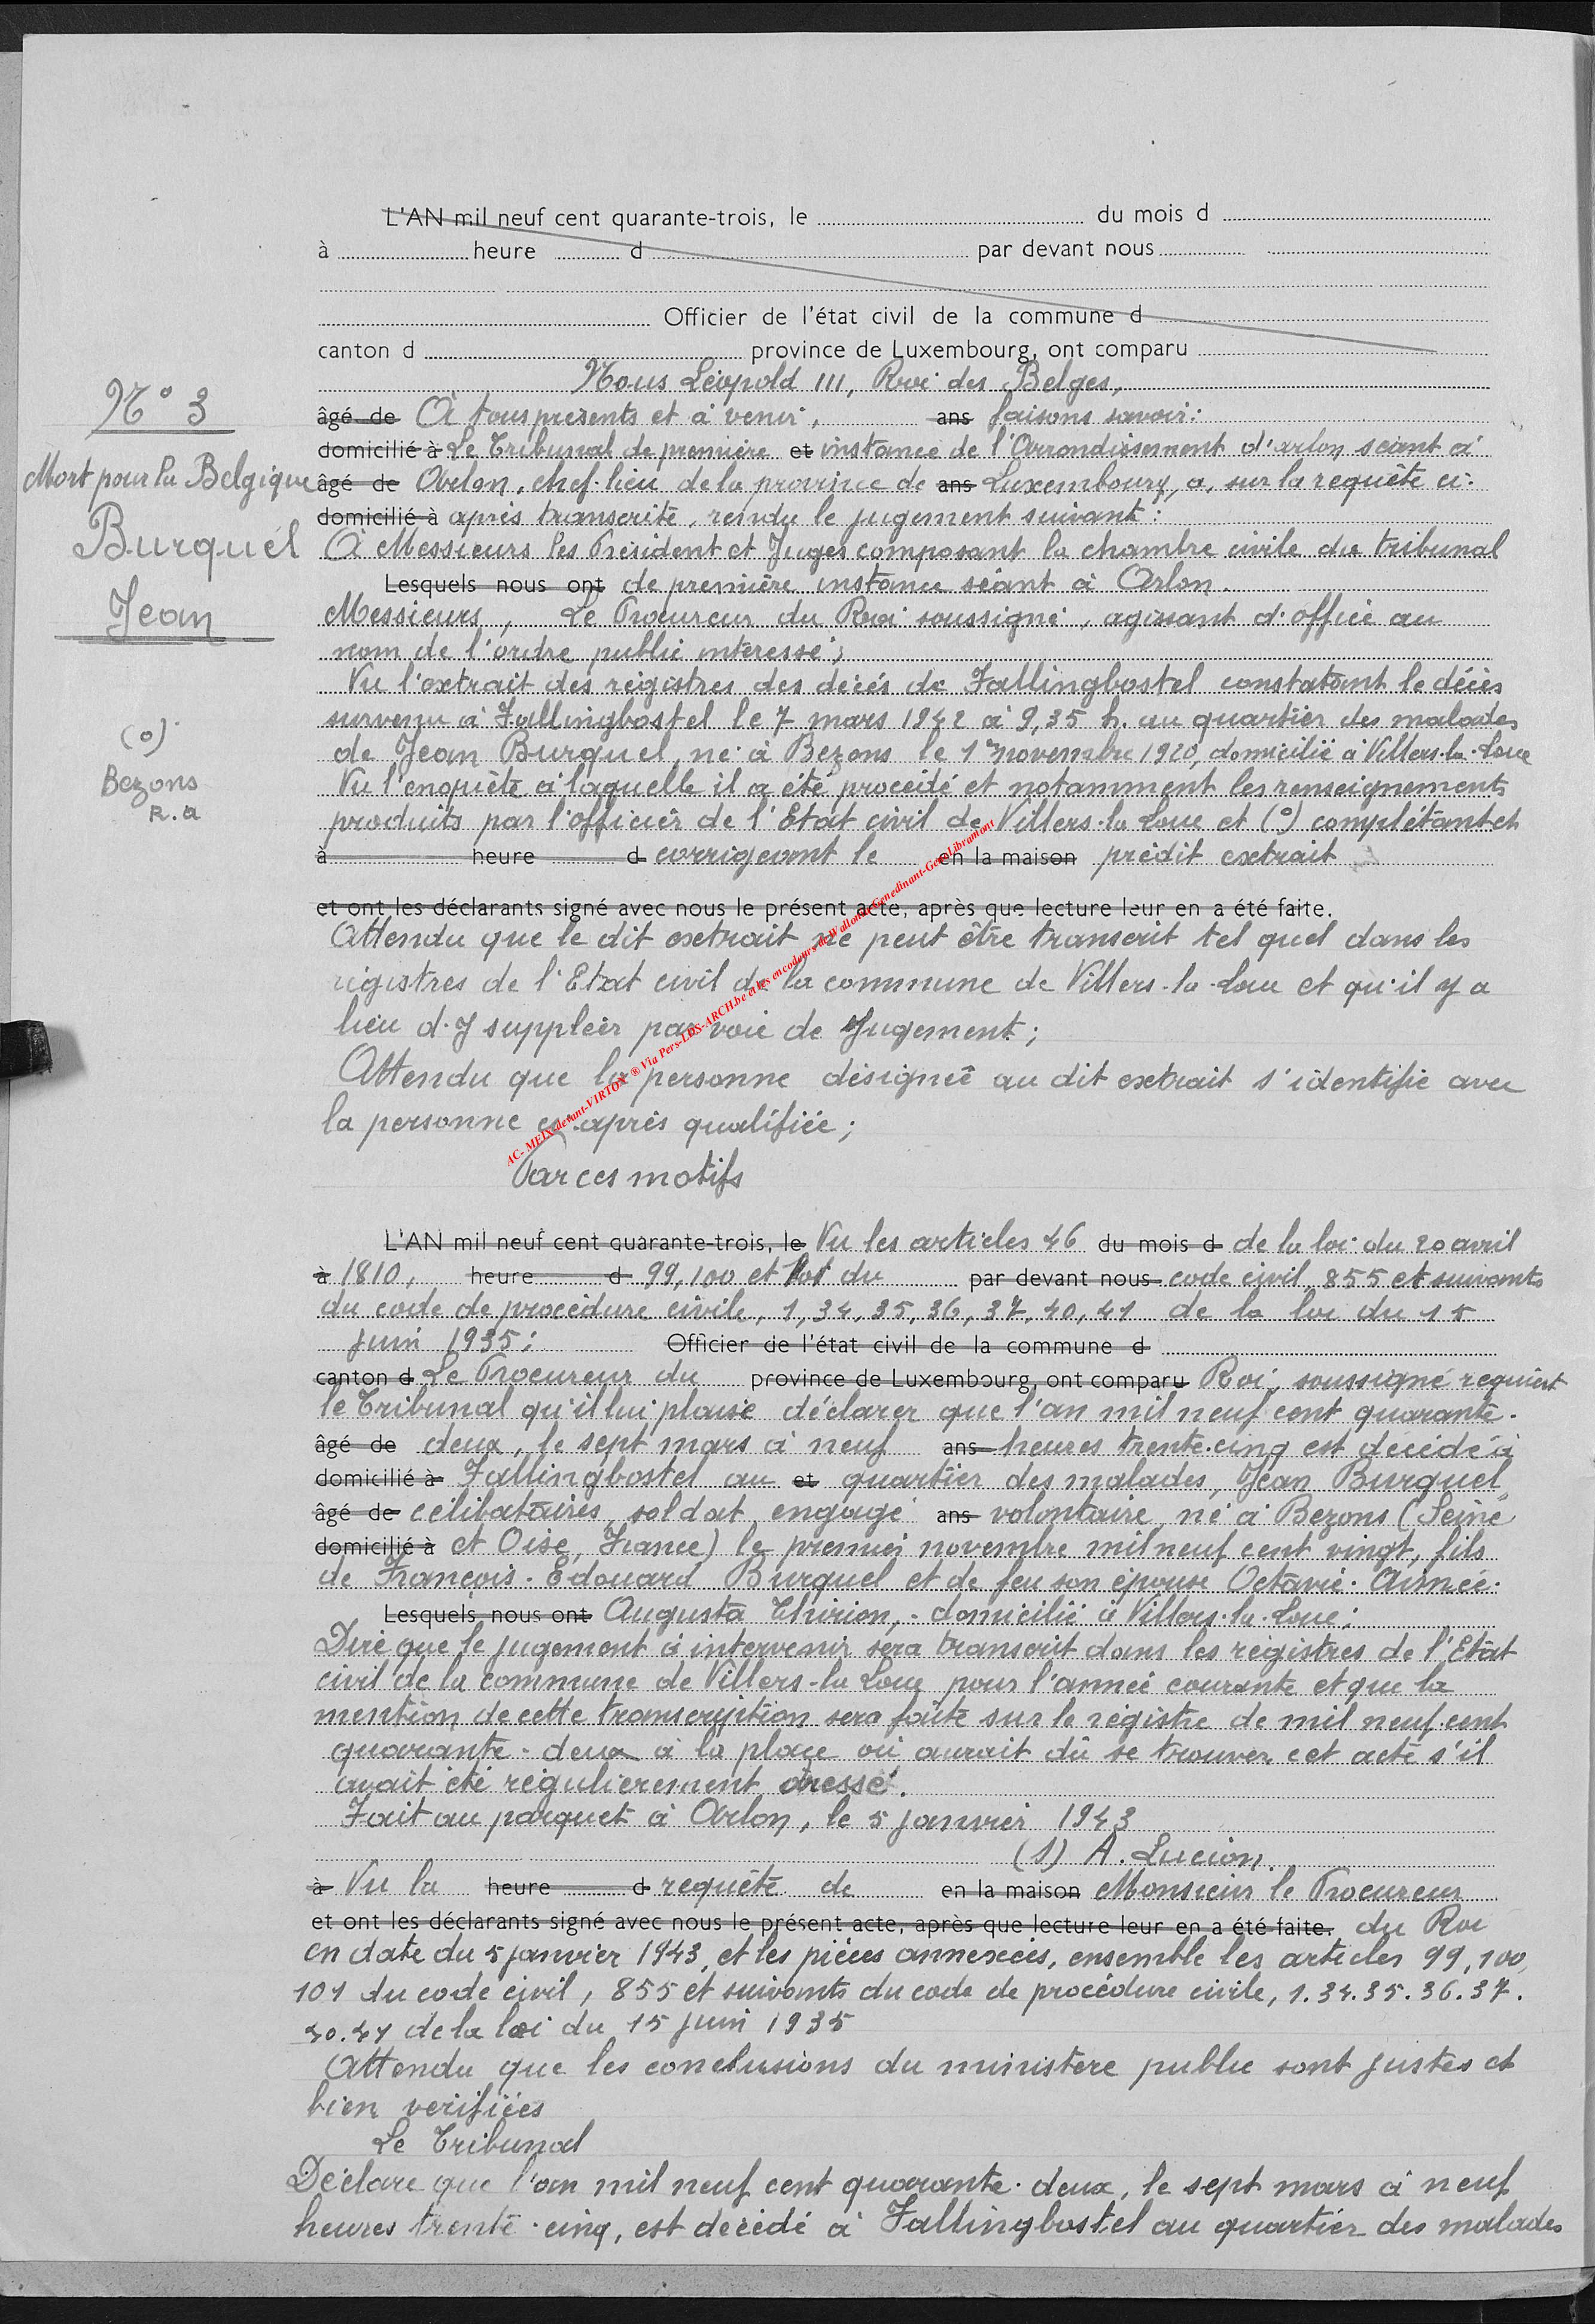 L'AN mil neuf cent quarante-trois, le du mois d
à heure d par devant nous
Officier de l'état civil de la commune d
canton d province de Luxembourg, ont comparu
Nous Léopold III, Roi des Belges,
N° 3
âgé de A tous présents et à venir, ans faisons savoir:
domicilié à Le Tribunal de première et instance de l'Arrondissement d'Arlon séant à
Mort pour la Belgique
âgé de Arlon, chef-lieu de la province de ans Luxembourg, a, sur la requête ci-
domicilié à après transcrite, rendu le jugement suivant:
Burquel
A Messieurs les Président et Juges composant la chambre civile du tribunal
Lesquels nous ont de première instance séant à Arlon.
Jean
Messieurs, Le Procureur du Roi soussigné, agissant d'office au
nom de l'ordre public intéressé;
Vu l'extrait des régistres des décés de Fallingbostel constatant le décès
survenu à Fallingbostel le 7 mars 1942 à 9,35 h. au quartier des malades
(o)
de Jean Burquel, né à Bezons le 1er novembre 1920, domicilié à Villers-la-Loue
Bezons
Vu l'enquête à laquelle il a été procédé et notamment les renseignements
R.a
produits par l'officier de l'Etat civil de Villers-la Loue et (o) complétant et
à heure d corrigeant le en la maison prédit extrait
et ont les déclarants signé avec nous le présent acte, après que lecture leur en a été faite.
Attendu que le dit extrait ne peut être transcrit tel quel dans les
régistres de l'Etat civil de la commune de Villers-la-Loue et qu'il y a
lieu d'y suppléer par voie de Jugement;
Attendu que la personne désignée au dit extrait s'identifie avec
la personne ci-après qualifiée;
AC- MEIX-devant-VIRTON ® Via Pers-LDS-ARCH.be et les encodeurs de Wallonie-Genedinant-GenLibramont
Par ces motifs
L'AN mil neuf cent quarante-trois, le Vu les articles 46 du mois d de la loi du 20 avril
à 1810, heure d 99,100 et 101 du par devant nous code civil, 855 et suivants
du code de procédure civile, 1, 34, 35, 36, 37, 40, 41 de la loi du 15
juin 1935: Officier de l'état civil de la commune d
canton d Le Procureur du province de Luxembourg, ont comparu Roi, soussigné requiert
le Tribunal qu'il lui plaise déclarer que l'an mil neuf cent quarante-
âgé de deux, le sept mars à neuf ans heures trente-cinq est décédé à
domicilié à Fallingbostel au et quartier des malades, Jean Burquel,
âgé de célibataires, soldat engagé ans volontaire, né à Bezons (Seine
domicilié à et Oise, France) le premier novembre mil neuf cent vingt, fils
de François-Edouard Burquel et de feu son épouse Octavie-Aimée-
Lesquels nous ont Augusta Thirion, - domicilié à Villers-la-Loue;
Dire que le jugement à intervenir sera transcrit dans les régistres de l'Etat
civil de la commune de Villers-la Loue pour l'année courante et que la
mention de cette transcription sera faite sur le régistre de mil neuf cent
quarante-deux à la place où aurait dû se trouver cet acte s'il
avait été régulièrement dressé.
Fait au parquet à Arlon, le 5 janvier 1943
(s) A. Lucion.
à Vu la heure d requête de en la maison Monsieur le Procureur
et ont les déclarants signé avec nous le présent acte, après que lecture leur en a été faite. du Roi
en date du 5 janvier 1943, et les pièces annexées, ensemble les articles 99, 100,
101 du code civil, 855 et suivants du code de procédure civile, 1.34.35.36.37.
40.41 de la loi du 15 juin 1935
Attendu que les conclusions du ministère public sont justes et
bien vérifiées
Le Tribunal
Déclare que l'an mil neuf cent quarante-deux, le sept mars à neuf
heures trente-cinq, est décédé à Fallingbostel au quartier des malades